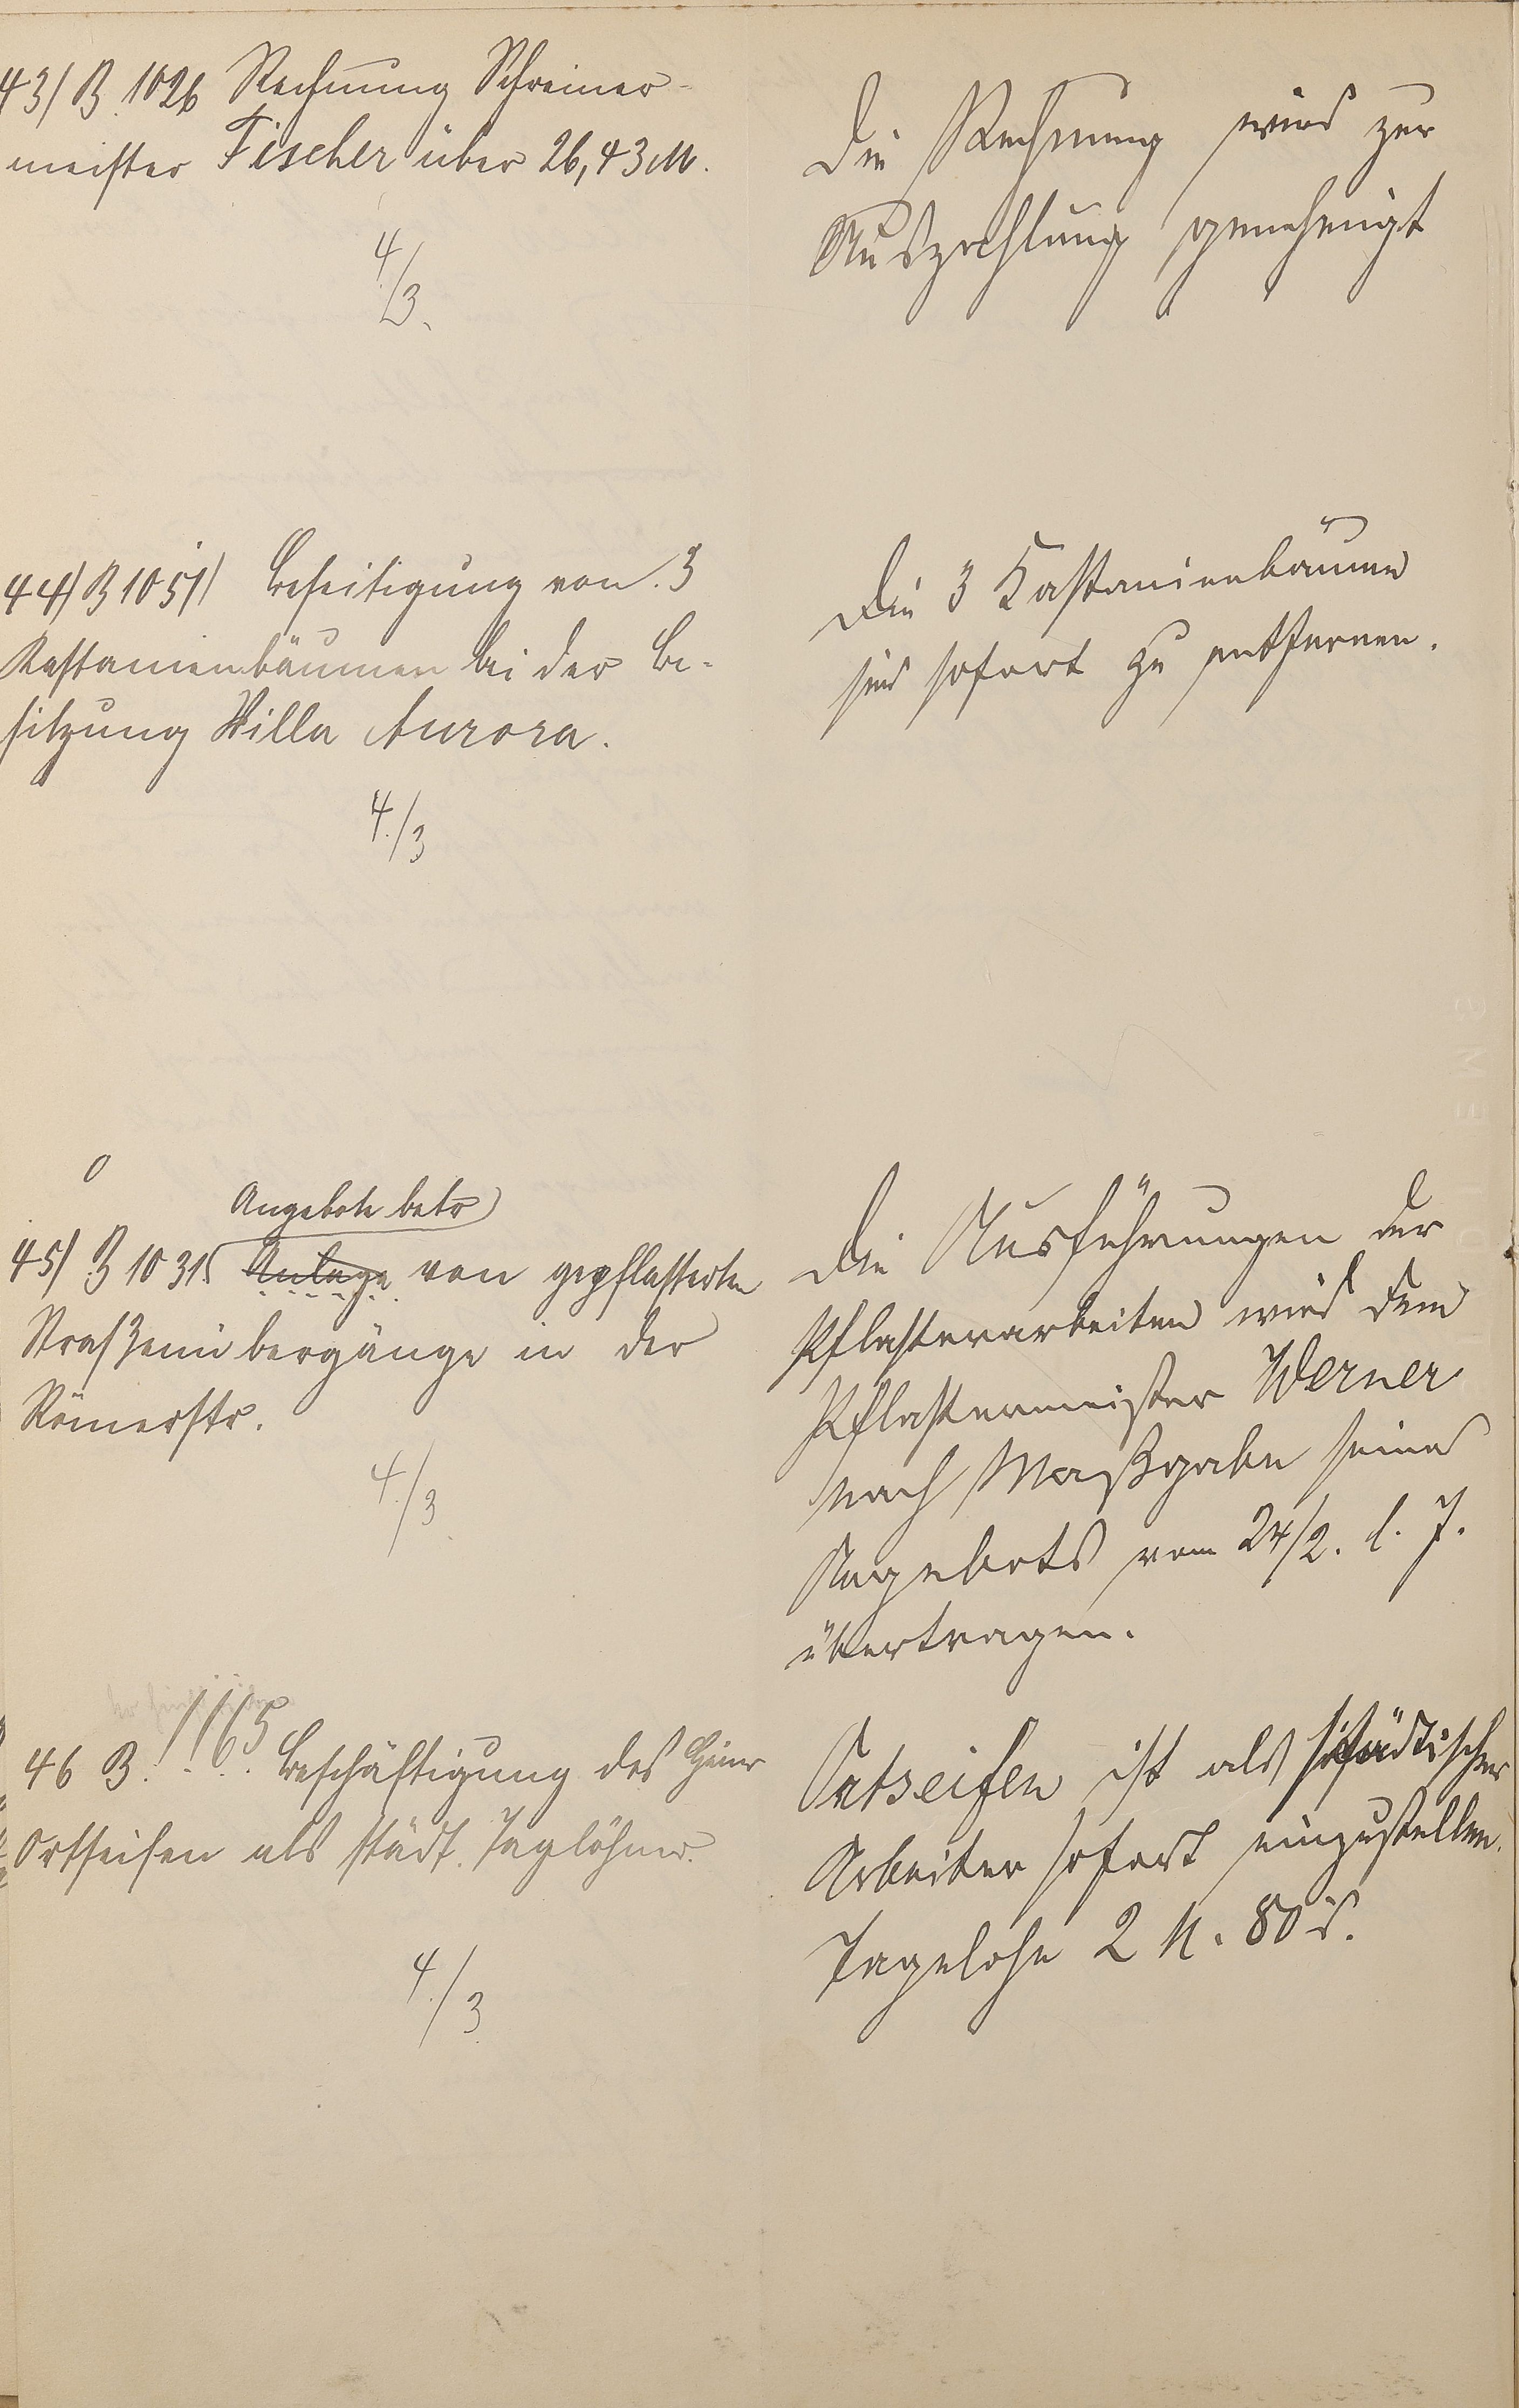 43/ B. 1026 Rechnung Schreiner-
meister Fischer über 26,43 M.
4/3.
Die Rechnung wird zur
Auszahlung genehmigt
44/ B 1051/ Beseitigung von 3
Kastanienbäumen bei der Be-
sitzung Villa Aurora.
4./3
Die 3 Kastanienbäume
sind sofort zu entfernen.
0
Angebote betr
45/ B 1031. Anlage von gepflasterten
Straßenübergänge in der
Römerstr.
4./3
Die Ausführungen der
Pflasterarbeiten wird dem
Pflastermeister Werner
nach Maßgabe seines
Angebots vom 24/2. l. J.
übertragen.
46 B. 1165 Beschäftigung des Heinr
Ortseifen als städt. Taglöhner.
4./3
Ortseifen ist als städtischer
Arbeiter sofort einzustellen.
Tagelohn 2 M. 80 d.